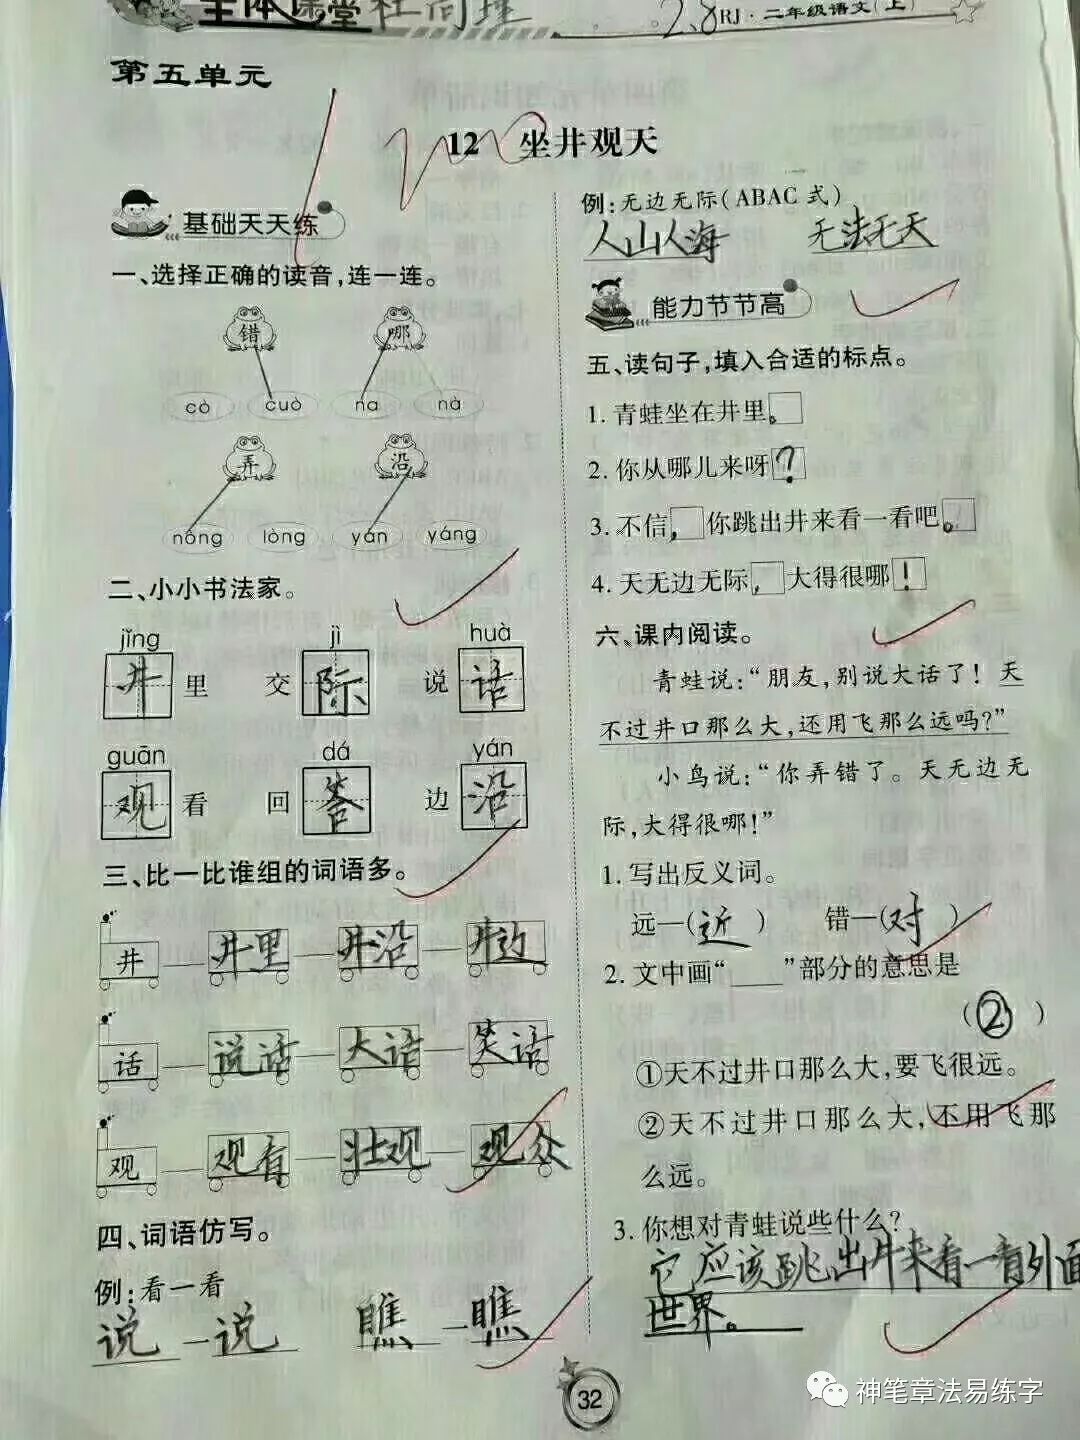 主体课堂
2.8 RJ·二年级语文(上)
第五单元
12 坐井观天
基础天天练
一、选择正确的读音,连一连。
错 哪
cò cuò na nà
弄 沿
nóng lòng yán yáng
二、小小书法家。
jǐng jì huà
井里 交际 说话
guān dá yán
观看 回答 边沿
三、比一比谁组的词语多。
井 井里 井沿 井边
话 说话 大话 笑话
观 观看 壮观 观众
四、词语仿写。
例:看一看
说一说 瞧一瞧
例:无边无际(ABAC式)
人山人海 无法无天
能力节节高
五、读句子,填入合适的标点。
1. 青蛙坐在井里。
2. 你从哪儿来呀?
3. 不信,你跳出井来看一看吧。
4. 天无边无际,大得很哪!
六、课内阅读。
青蛙说:“朋友,别说大话了!天
不过井口那么大,还用飞那么远吗?”
小鸟说:“你弄错了。天无边无
际,大得很哪!”
1. 写出反义词。
远—(近) 错—(对)
2. 文中画“____”部分的意思是
(②)
①天不过井口那么大,要飞很远。
②天不过井口那么大,不用飞那
么远。
3. 你想对青蛙说些什么?
它应该跳出井来看一看外面
世界。
32
神笔章法易练字